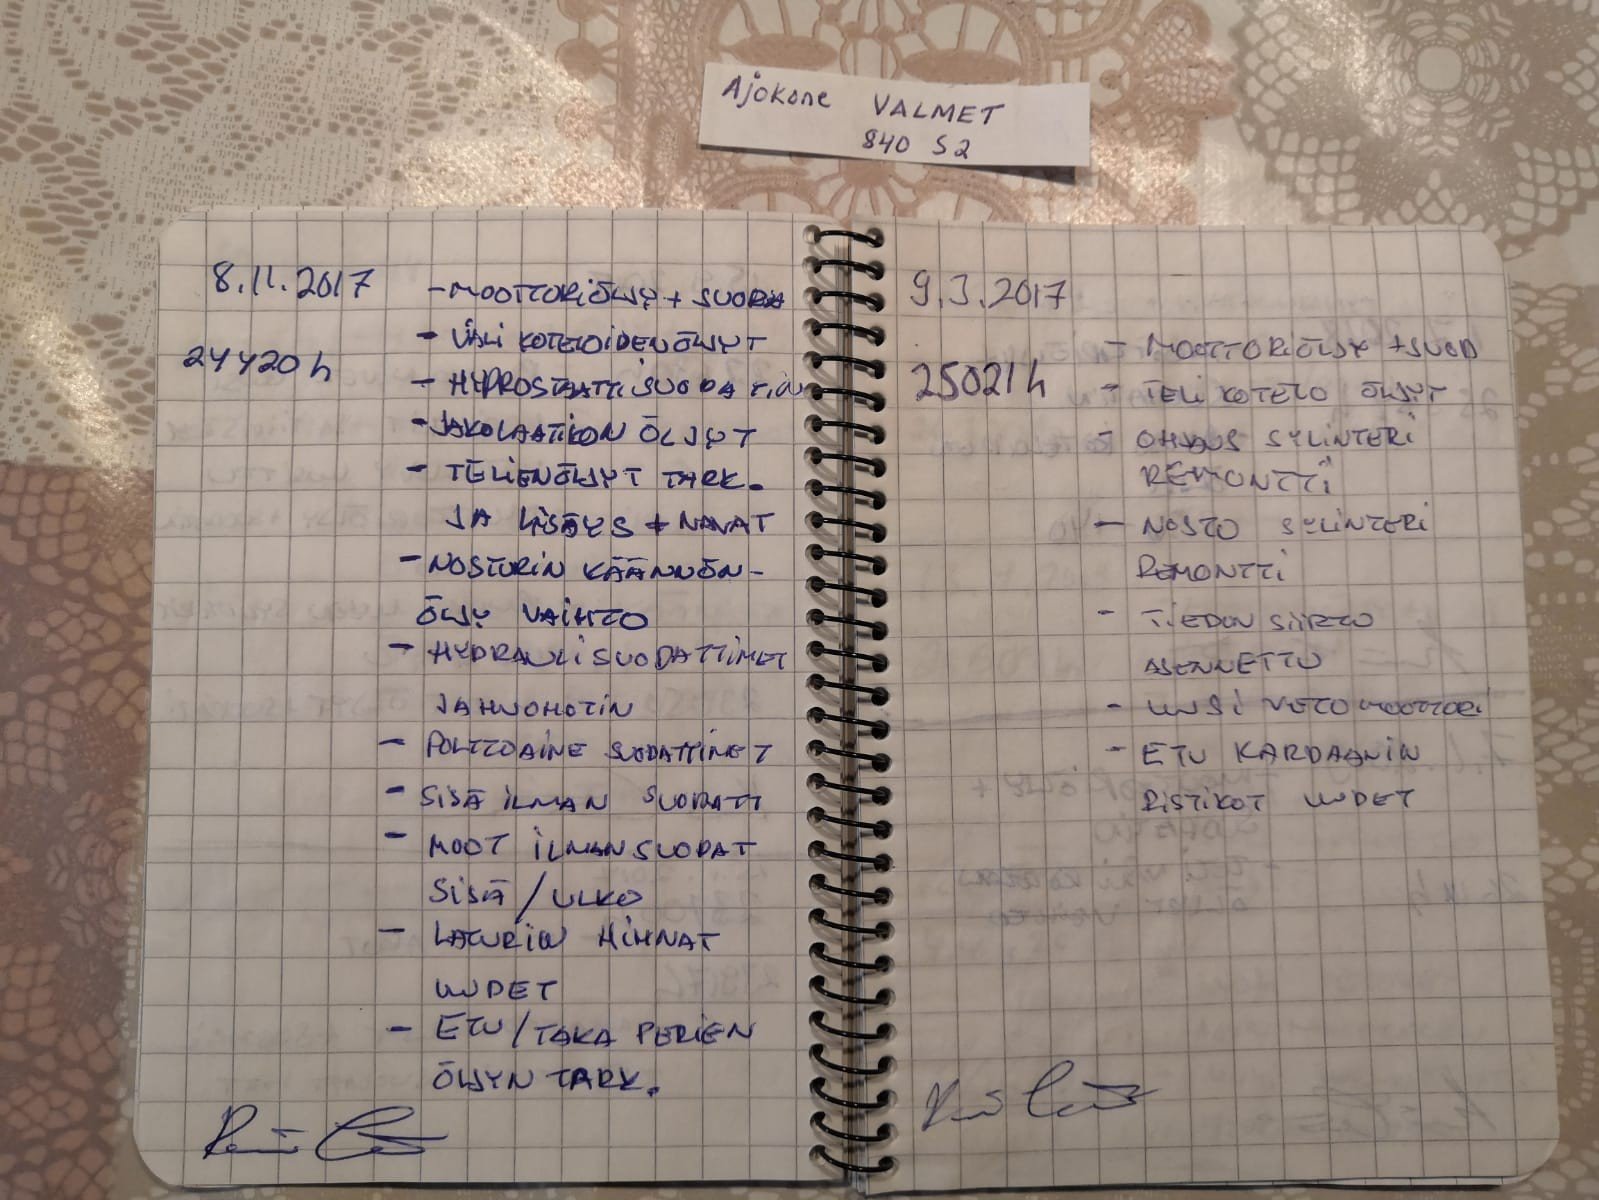 Ajokone VALMET
840 S2
8.11.2017
24420 h
- MOOTTORIÖLJY + SUODA
- VÄLI KOTELOIDEN ÖLJYT
- HYDROSTAATTISUODATIN
- JAKOLAATIKON ÖLJYT
- TELIENÖLJYT TARK.
JA LISÄYS + NAVAT
- NOSTURIN KÄÄNNÖN-
ÖLJY VAIHTO
- HYDRAULISUODATTIMET
JA HUOHOTIN
- POLTTOAINE SUODATTIMET
- SISÄ ILMAN SUODATT
- MOOT ILMANSUODAT
SISÄ / ULKO
- LATURIN HIHNAT
UUDET
- ETU / TAKA PERIEN
ÖLJYN TARK.
9.3.2017
25021 h
- MOOTTORIÖLJY + SUOD
- TELI KOTELO ÖLJYT
- OHJAUS SYLINTERI
REMONTTI
- NOSTO SYLINTERI
REMONTTI
- TIEDON SIIRTO
ASENNETTU
- UUSI VETOMOOTTORI
- ETU KARDAANIN
RISTIKOT UUDET